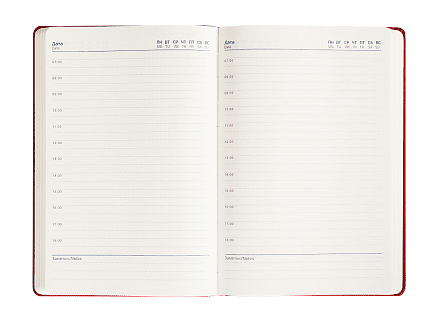 Дата ПН ВТ СР ЧТ ПТ СБ ВС
Date MO TU WE TH FR SA SU
07:00
08:00
09:00
10:00
11:00
12:00
13:00
14:00
15:00
16:00
17:00
18:00
Заметки/Notes
Дата ПН ВТ СР ЧТ ПТ СБ ВС
Date MO TU WE TH FR SA SU
07:00
08:00
09:00
10:00
11:00
12:00
13:00
14:00
15:00
16:00
17:00
18:00
Заметки/Notes